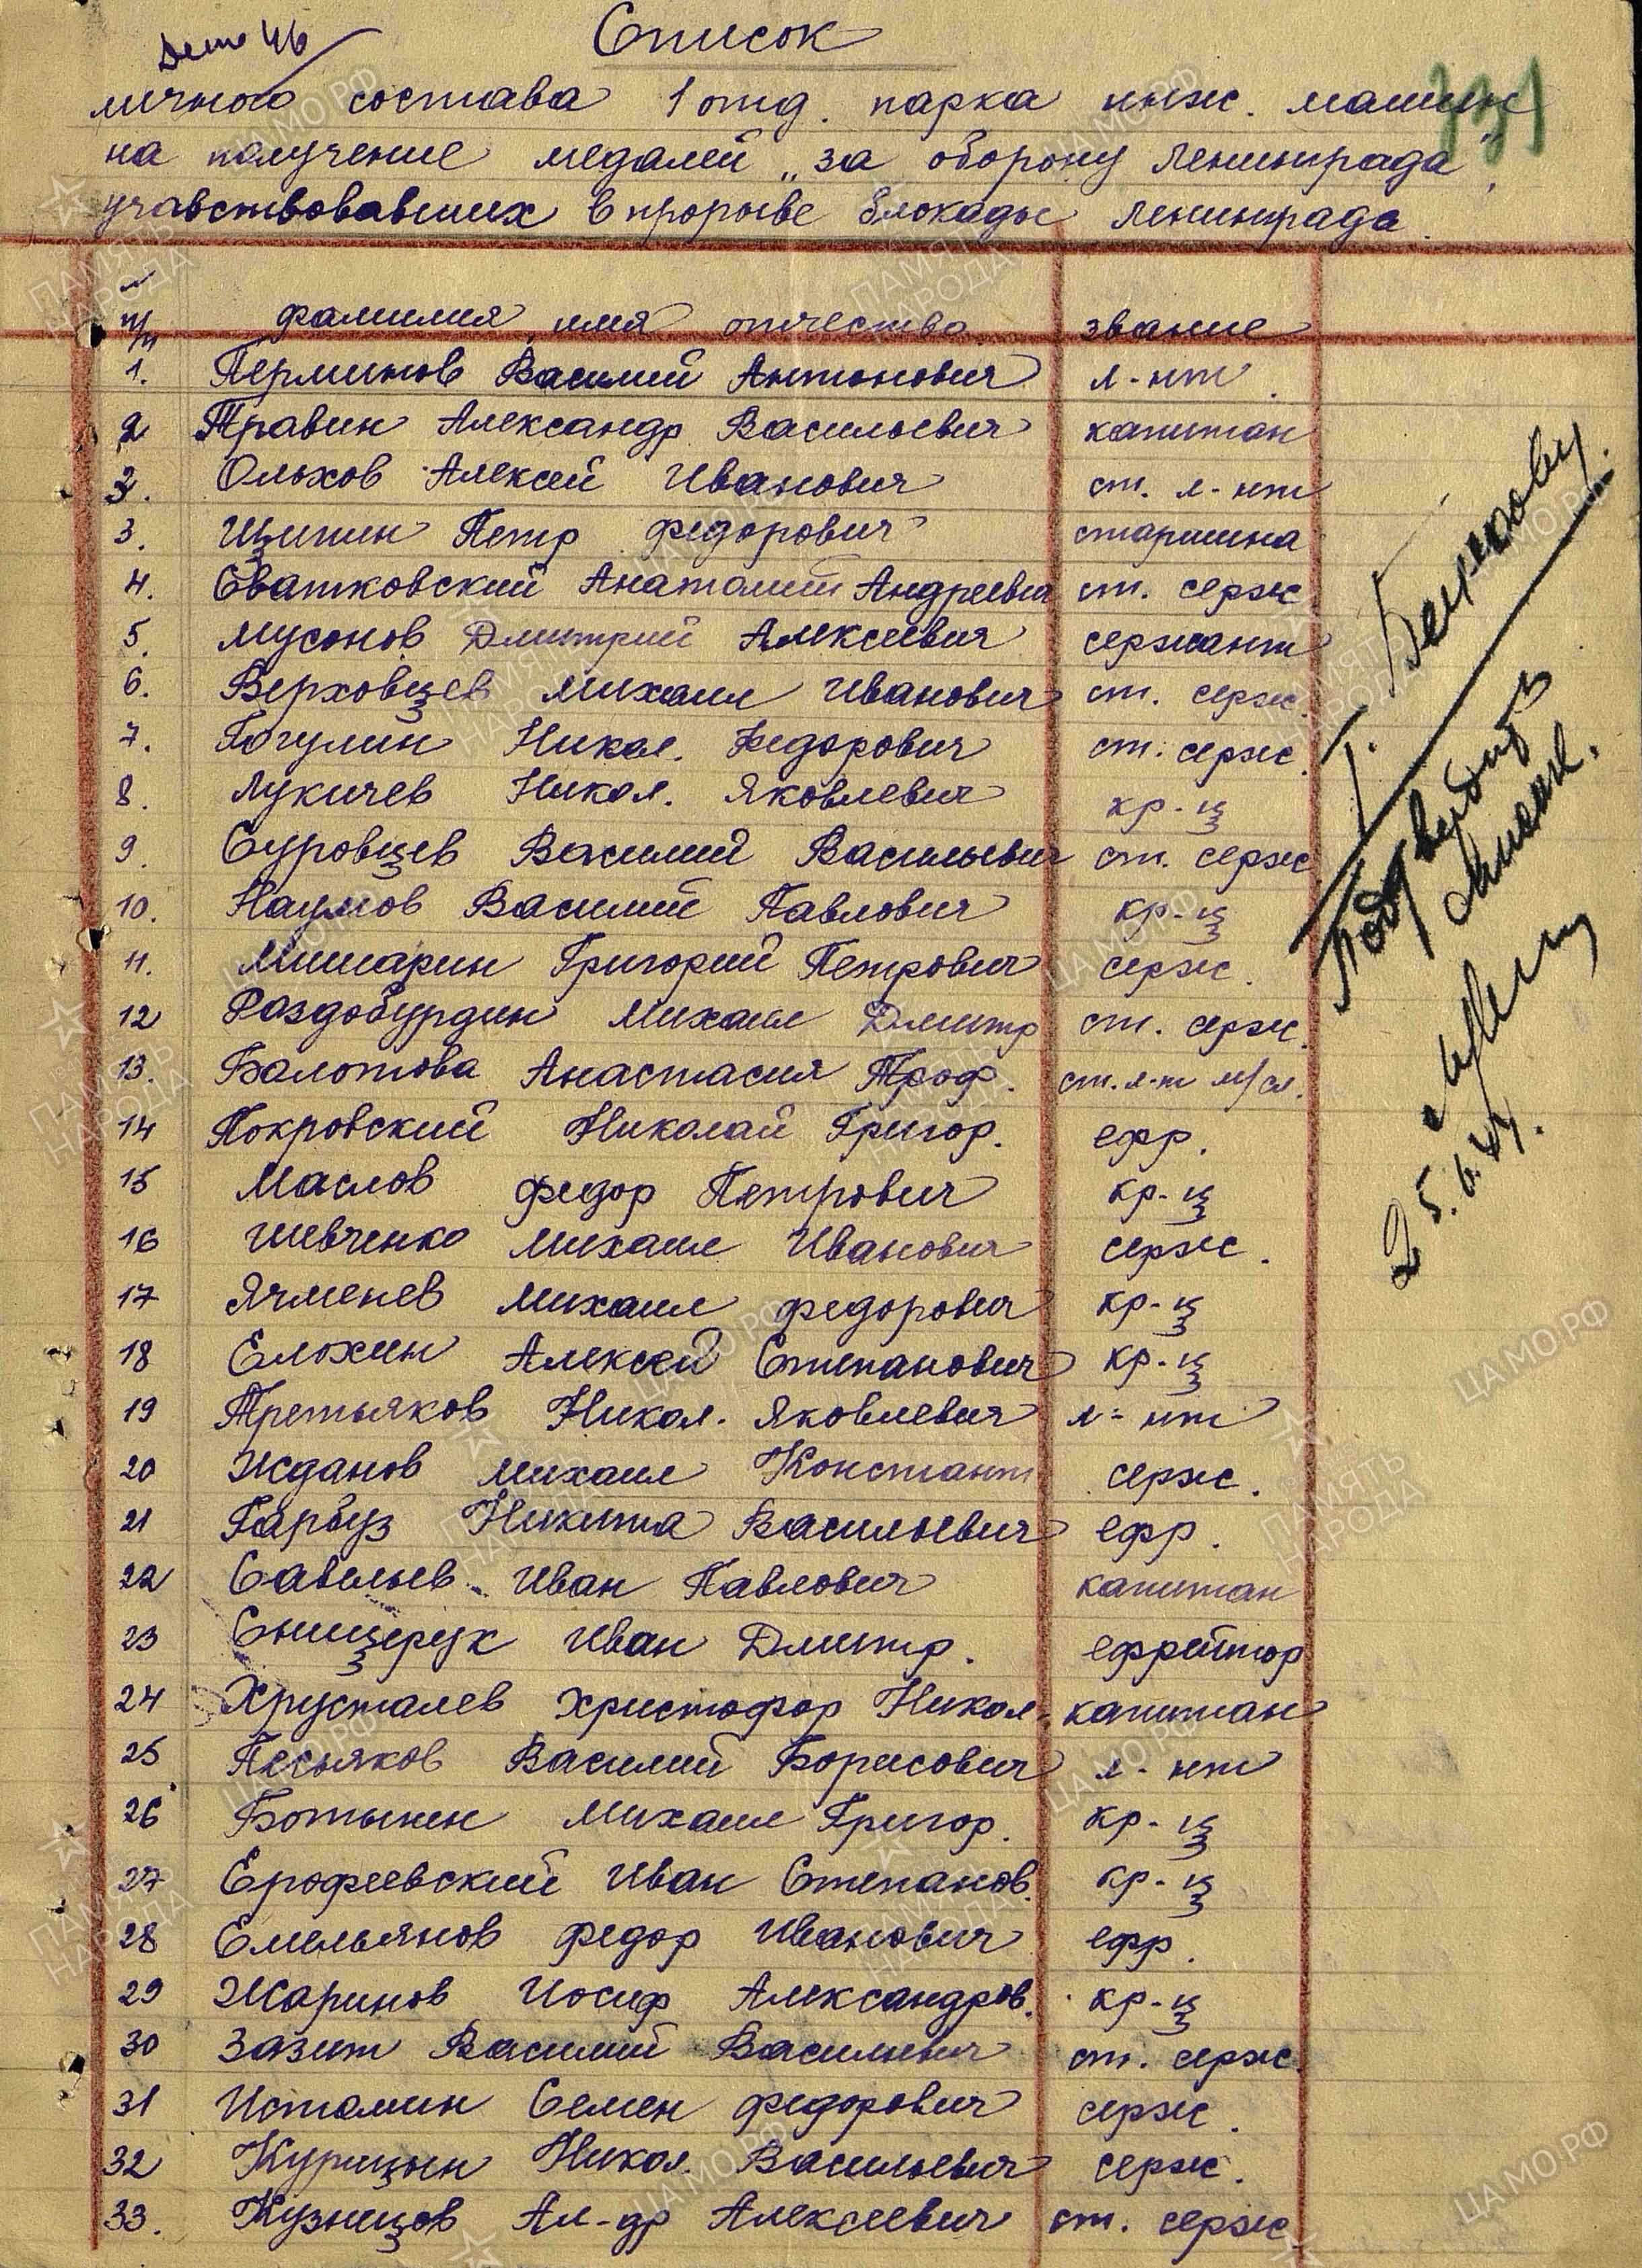 Список
личного состава 1 отд. парка инж. машин
на получение медалей „за оборону Ленинграда"
учавствовавших в прорыве блокады Ленинграда.
п/п фамилия, имя отчество звание
1. Перминов Василий Антонович л-нт
2 Травин Александр Васильевич капитан
3. Ольхов Алексей Иванович ст. л-нт
3. Щипин Петр Федорович старшина
4. Сватковский Анатолий Андреевич ст. серж
5. Мусонов Дмитрий Алексеевич сержант
6. Верховцев Михаил Иванович ст. серж.
7. Гогулин Никол. Федорович ст. серж.
8. Лукичев Никол. Яковлевич кр-ц
9. Суровцев Василий Васильевич ст. серж
10. Наумов Василий Павлович кр-ц
11. Мишарин Григорий Петрович серж.
12 Раздобурдин Михаил Дмитр ст. серж.
13. Балотова Анастасия Троф. ст. л-т м/сл.
14 Покровский Николай Григор. ефр.
15 Маслов Федор Петрович кр-ц
16 Шевченко Михаил Иванович серж.
17 Ячменев Михаил Федорович кр-ц
18 Елохин Алексей Степанович кр-ц
19 Третьяков Никол. Яковлевич л-нт
20 Жданов Михаил Констант серж.
21 Гарбуз Никита Васильевич ефр.
22 Савельев Иван Павлович капитан
23 Снищерук Иван Дмитр. ефрейтор
24 Хрусталев Христофор Никол. капитан
25 Песьяков Василий Борисович л-нт
26 Ботынен Михаил Григор. кр-ц
27 Ерофеевский Иван Степанов. кр-ц
28 Емельянов Федор Иванович ефр.
29 Жаринов Иосиф Александров. кр-ц
30 Зазит Василий Васильевич ст. серж.
31 Истомин Семен Федорович серж.
32 Курицын Никол. Васильевич серж.
33. Кузнецов Ал-др Алексеевич ст. серж
Т.
Подтвердить
25.6.
ПАМЯТЬ НАРОДА
ЦАМО.РФ